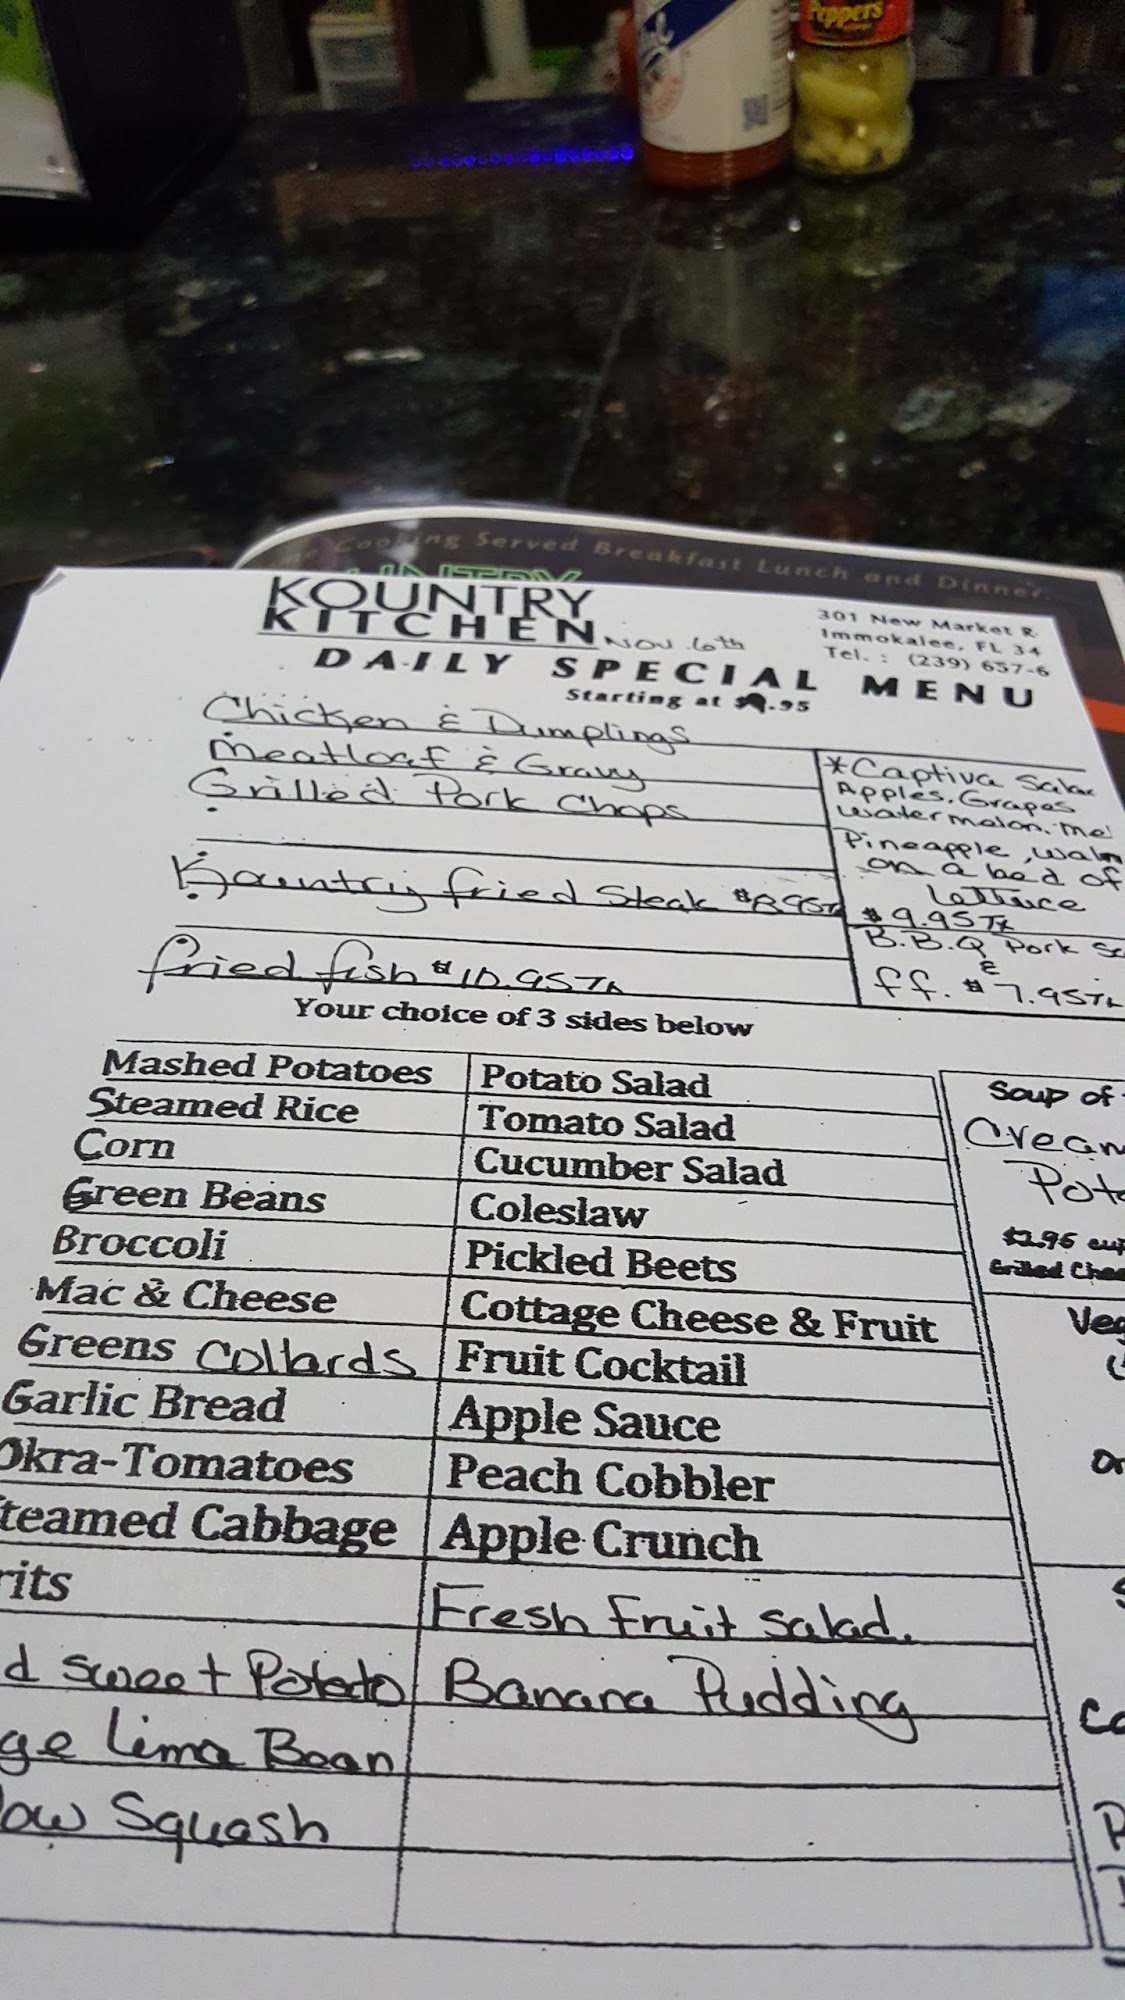 Peppers
Cooking Served Breakfast Lunch and Dinner.
KOUNTRY
KITCHEN
Nov 6th
301 New Market R
Immokalee, FL 34
Tel. : (239) 657-6
DAILY SPECIAL MENU
Starting at $ .95
Chicken & Dumplings
Meatloaf & Gravy
Grilled Pork Chops
Kountry fried Steak $8.95Tx
fried fish $10.95Tx
*Captiva Sala
Apples, Grapes
watermelon, mel
Pineapple, waln
on a bed of
lettuce
$9.95Tx
B.B.Q Pork S
&
ff. $7.95Tx
Your choice of 3 sides below
Mashed Potatoes
Steamed Rice
Corn
Green Beans
Broccoli
Mac & Cheese
Greens Collards
Garlic Bread
Okra-Tomatoes
teamed Cabbage
rits
d sweet Potato
ge lima Bean
low Squash
Potato Salad
Tomato Salad
Cucumber Salad
Coleslaw
Pickled Beets
Cottage Cheese & Fruit
Fruit Cocktail
Apple Sauce
Peach Cobbler
Apple Crunch
Fresh Fruit Salad.
Banana Pudding
Soup of
Cream
Pot
$2.95 cup
Grilled Chee
Veg
or
Co